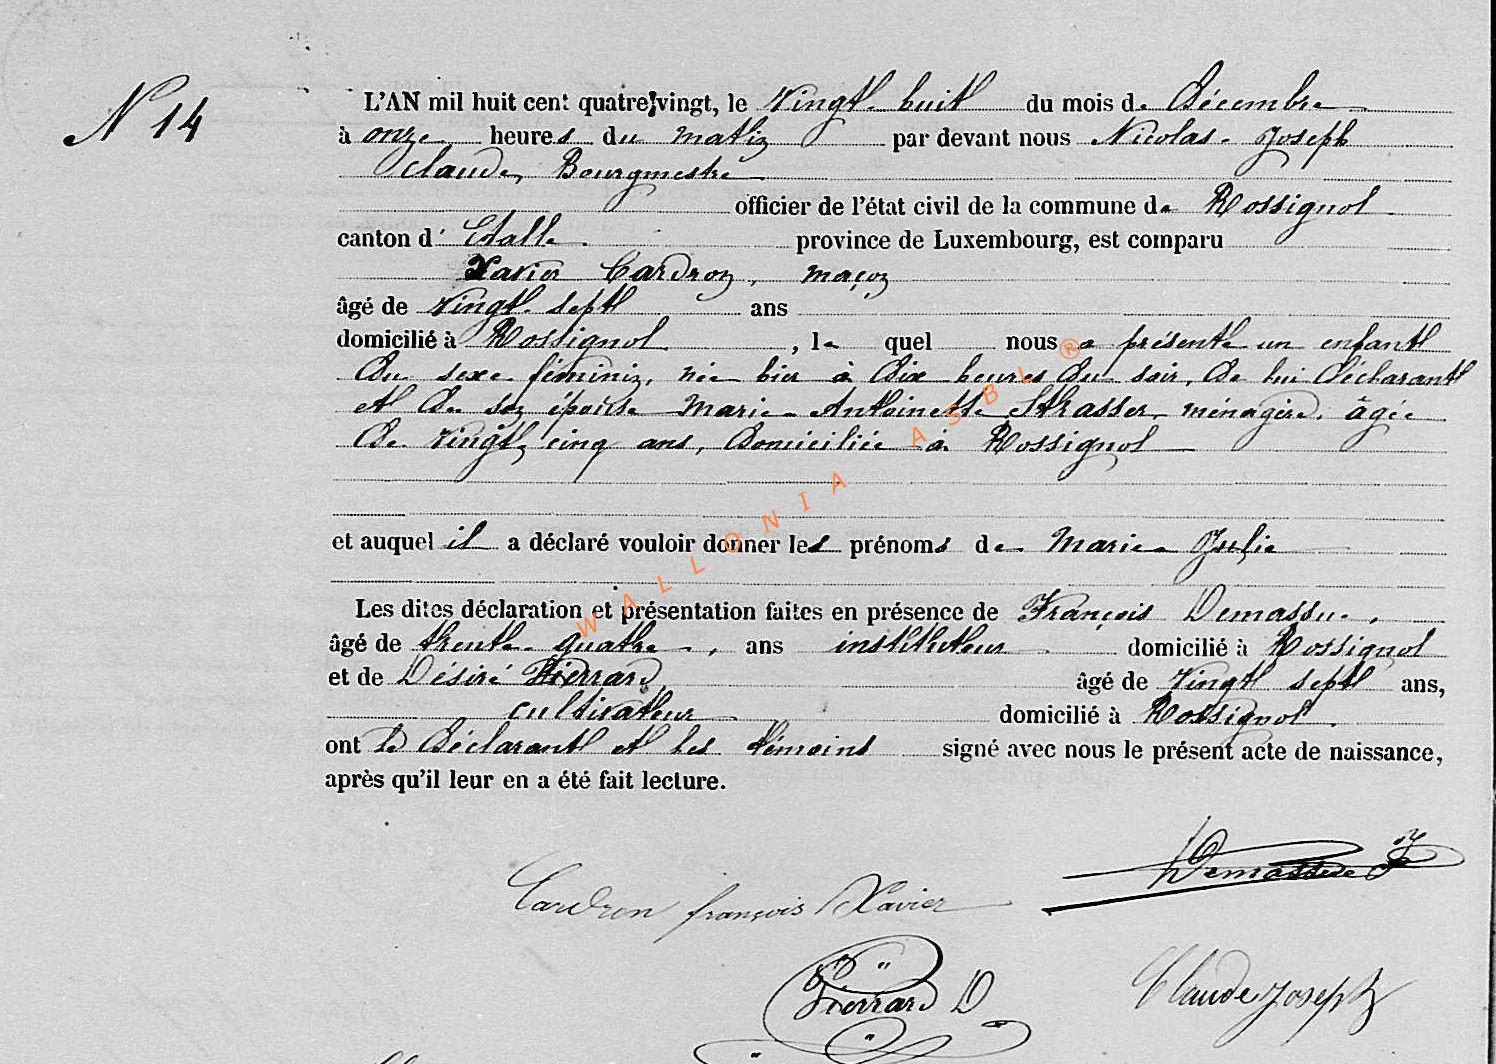 N 14
L'AN mil huit cent quatre-vingt, le Vingt-huit du mois de Décembre
à onze heures du matin par devant nous Nicolas-Joseph
Claude, Bourgmestre
officier de l'état civil de la commune de Rossignol
canton d' Etalle province de Luxembourg, est comparu
Xavier Cardron, maçon
âgé de Vingt-sept ans
domicilié à Rossignol, le quel nous a présenté un enfant
du sexe féminin, née hier à dix heures du soir, de lui déclarant
et de son épouse Marie-Antoinette Strasser, ménagère, âgée
de vingt cinq ans, domiciliée à Rossignol
et auquel il a déclaré vouloir donner les prénoms de Marie Julie
Les dites déclaration et présentation faites en présence de François Demasse,
âgé de trente-quatre, ans instituteur domicilié à Rossignol
et de Désiré Pierrard âgé de Vingt sept ans,
cultivateur domicilié à Rossignol.
ont le déclarant et les témoins signé avec nous le présent acte de naissance,
après qu'il leur en a été fait lecture.
Cardron françois Xavier
Pierrard D
Claude Joseph
WALLONIA ASBL ®